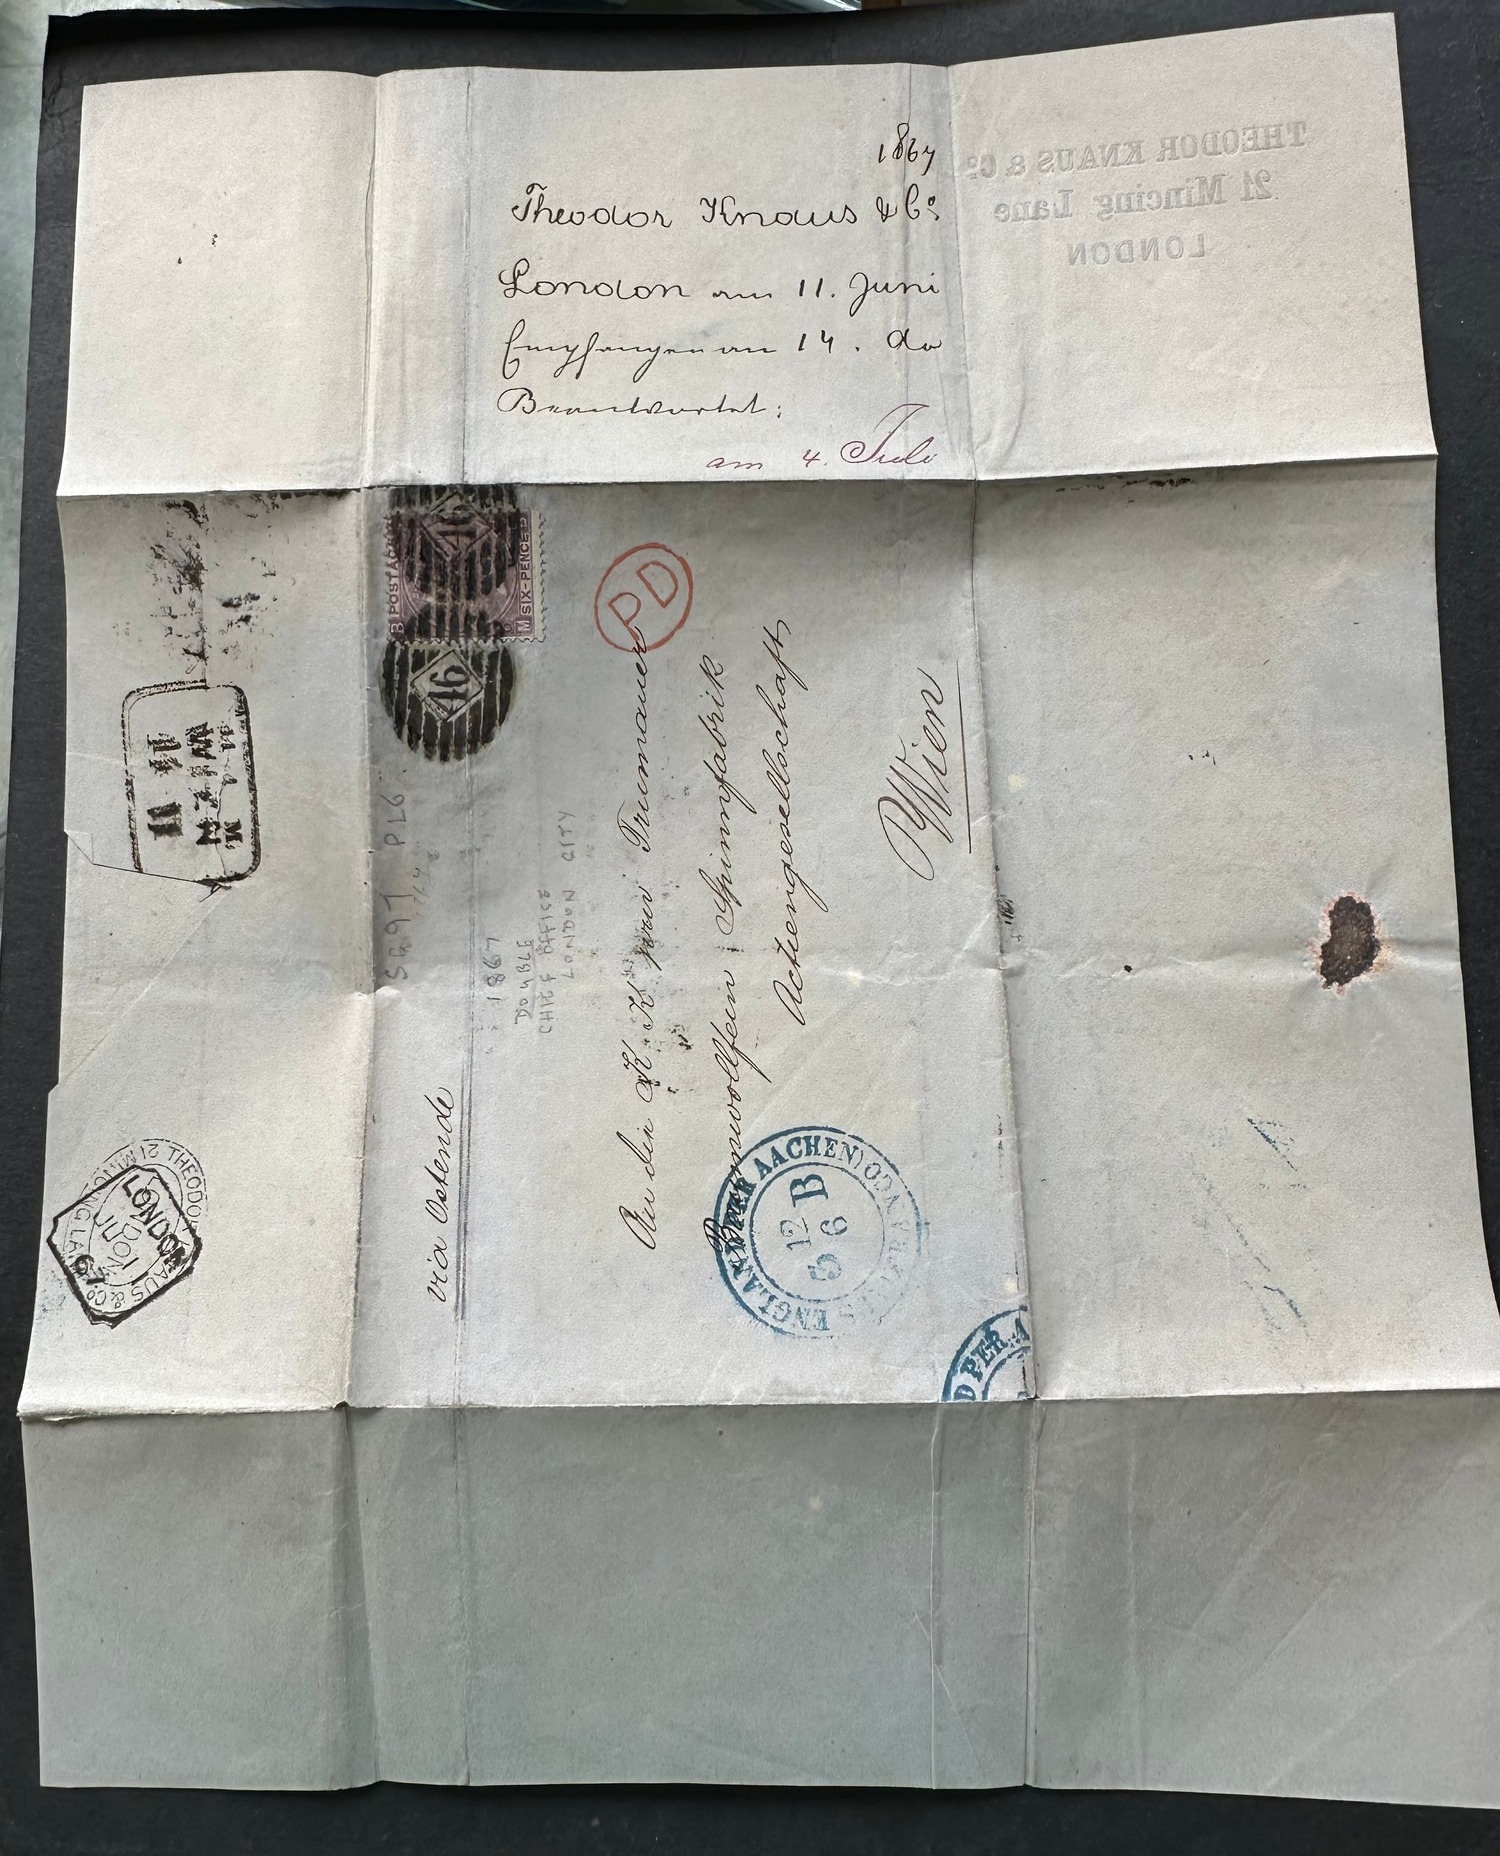 1867
Theodor Knaus & Co.
London am 11. Juni
Empfangen am 14. do
Beantwortet:
am 4. Juli
THEODOR KNAUS & Co.
21 Mincing Lane
LONDON
POSTAGE
SIX-PENCE
B
M
46
46
PD
SG 97 PL6
1867
DOUBLE
CHIEF OFFICE
LONDON CITY
via Ostende
An die K. K. priv Trumauer
Baumwollfein Spinnfabrik
Actiengesellschaft
Wien
ENGLAND PER AACHEN
12 B
6
D PER A
WIEN
LONDON
67
THEODOR KNAUS & Co.
21 MINCING LANE
LONDON